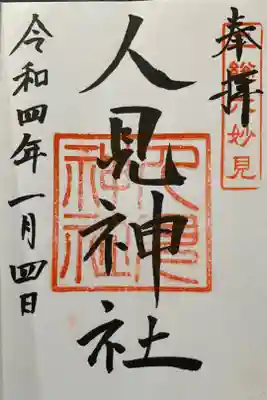 奉拝
妙見
人見神社
人見神社
令和四年一月四日